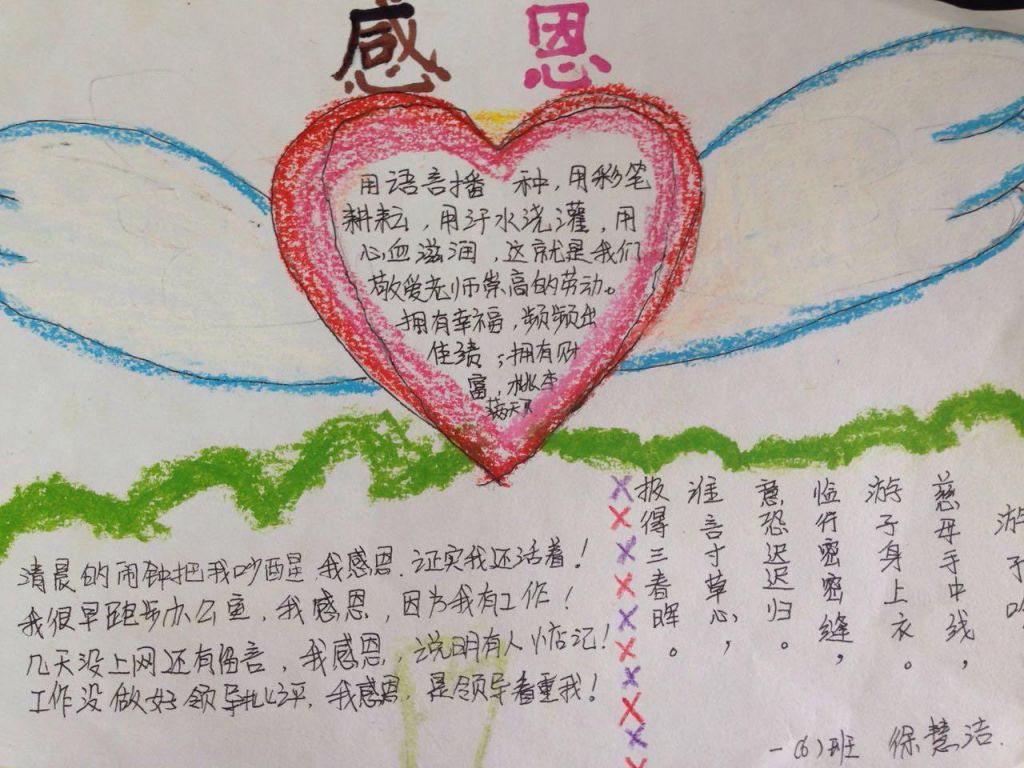 感恩
用语言播种,用彩笔
耕耘,用汗水浇灌,用
心血滋润,这就是我们
敬爱老师崇高的劳动。
拥有幸福,频频出
佳绩;拥有财
富,桃李
满天下
清晨的闹钟把我吵醒,我感恩.证实我还活着!
我很早跑步办公室,我感恩,因为我有工作!
几天没上网还有留言,我感恩,说明有人惦记!
工作没做好领导批评,我感恩,是领导着重我!
游子吟
慈母手中线,
游子身上衣。
临行密密缝,
意恐迟迟归。
谁言寸草心,
报得三春晖。
一(6)班 徐慧洁.